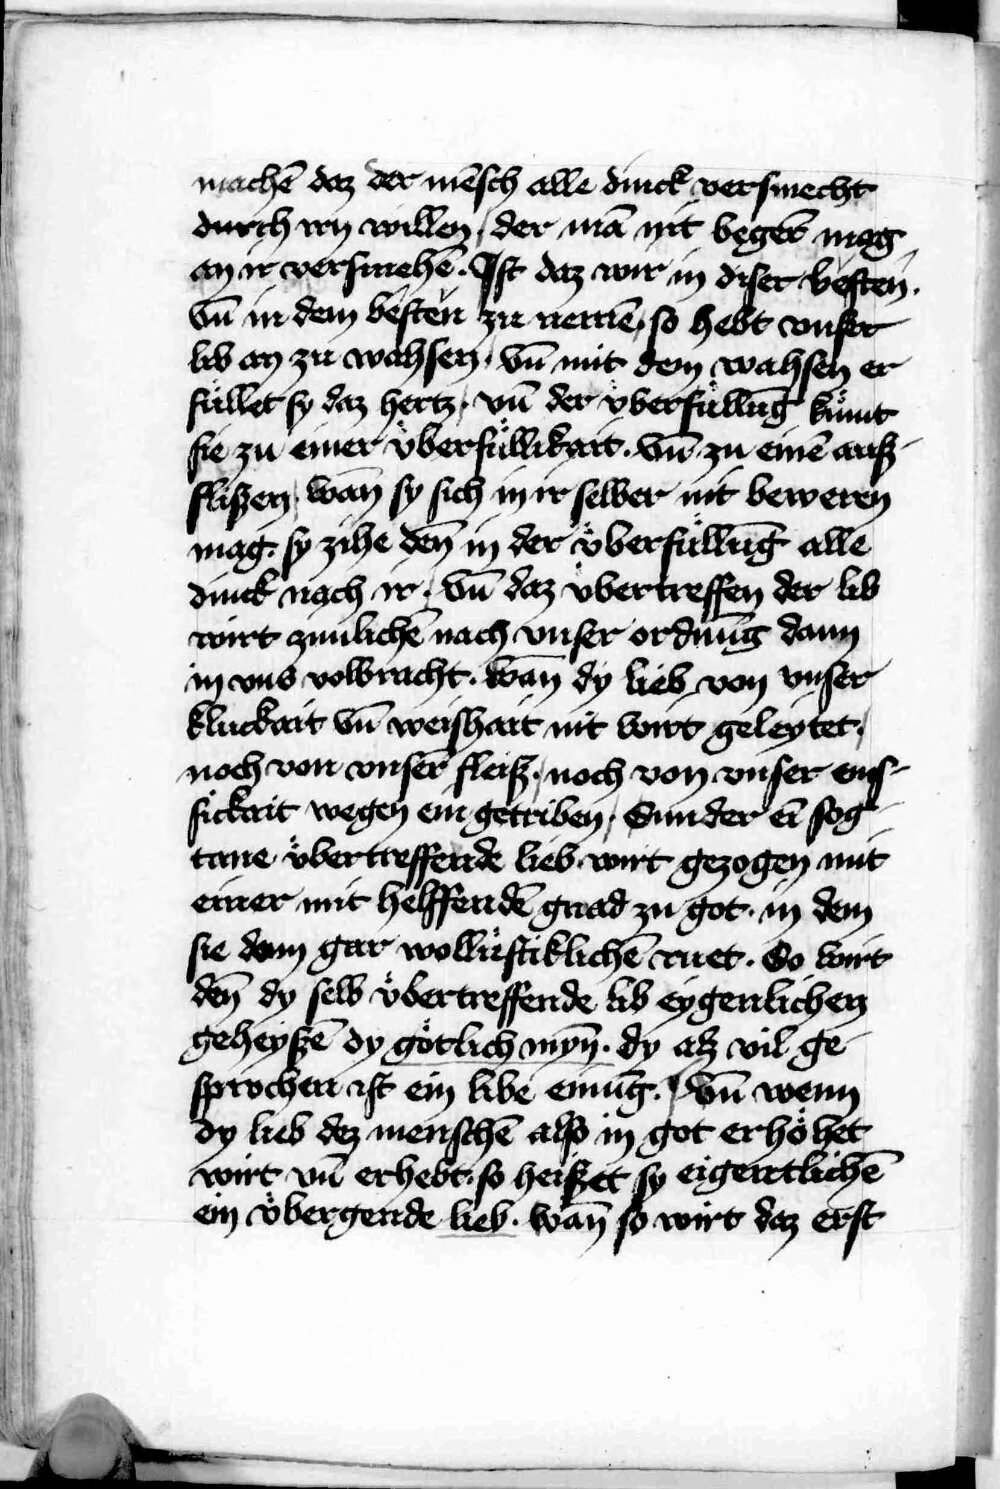 machē daz der mēsch alle dinck versmecht
durch irn willen, der mā nit begerē mag
an ir versmehē. Ist daz wir in diser vesten.
Vn̄ in dem besten zu nemē, so hebt vnser
lib an zu wahsen, Vn̄ mit dem wahsen er
füllet sy daz hertz. vn̄ der v̈berfüllūg kumt
sie zu einer v̈berfüllikait. Vn̄ zu einē auß-
flißen, wan̄ sy sich in ir selber nit beweren
mag. sy zihe den̄ in der v̈berfüllūg alle
dinck nach ir. Vn̄ daz v̈bertreffen der lib
wirt zimlichē nach vnser ordnūg dann
in vns volbracht. wan̄ dy lieb von vnser
kluckait Vn̄ weishait nit wirt geleytet,
noch von vnserē fleiß, noch von vnser ems-
sickait wegen ein getriben, Sunder ei̅ sog-
tane v̈bertreffende lieb wirt gezogen mit
einer mit helffendē gnad zu got. in dem
sie dann gar wollüstiklichē ruet. So wirt
den̄ dy selb v̈bertreffende lib eygenlichen
geheyßē dy götlich myn̄. dy alz vil ge-
sprochen ist ein libe einūg. Vn̄ wenn
dy lieb dez menschē also in got erhöhet
wirt vn̄ erhebt. so heißet sy eigentlichē
ein v̈bergende lieb. wan̄ so wirt daz erst